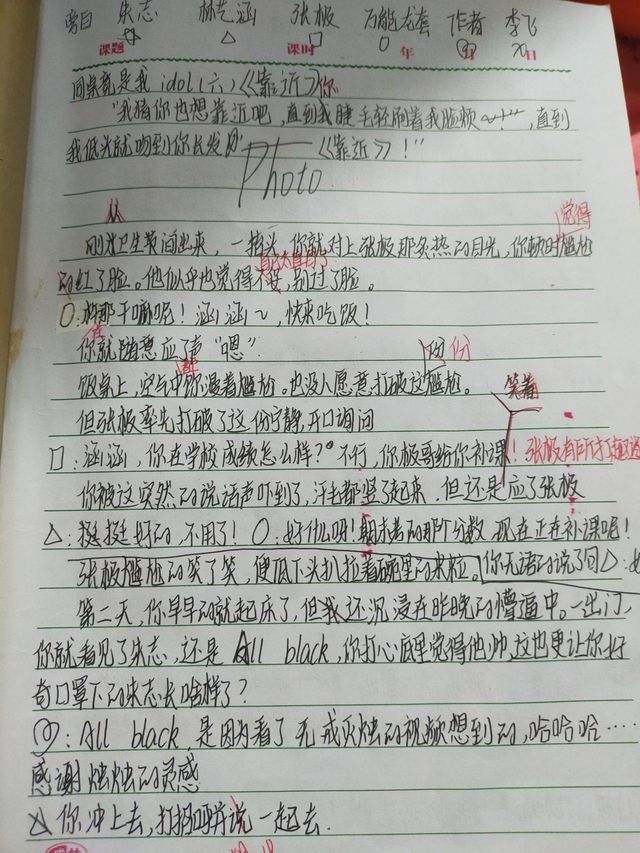 旁白 朱志 林艺涵 张极 万能龙套 作者 李飞
☆ △ □ ○ ♡ X
课题 课时 年 月 日
同桌竟是我idol(六)《靠近》你
"我猜你也想靠近吧,直到我睫毛轻刷着我脸颊~~,直到
我低头就吻到你长发《靠近》!"
Photo
从 觉得
刚从卫生间出来,一抬头,你就对上张极那炙热的目光,你顿时尴尬
的红了脸。他似乎也觉得不妥,别过了脸。
○:搁那干嘛呢!涵涵~,快来吃饭!
你就随意应了声"嗯"
份 份
饭桌上,空气中弥漫着尴尬。也没人愿意打破这尴尬。
笑着
但张极率先打破了这份宁静,开口询问
□:涵涵,你在学校成绩怎么样?不行,你极哥给你补课!张极
你被这突然的说话声吓到了,汗毛都竖了起来,但还是应了张极
△:挺挺好的,不用了!○:好什么呀!期末考的那个分数,现在正在补课呢!
张极尴尬的笑了笑,便低下头扒拉着碗里的米粒。你无语的说了句△:
第二天,你早早的就起床了,但我还沉浸在昨晚的懵逼中。一出门,
你就看见了朱志,还是All black,你打心底里觉得他帅,这也更让你好
奇口罩下的朱志长啥样了?
♡:All black,是因为看了无戒灭烛的视频想到的,哈哈哈……
感谢烛烛的灵感
△你冲上去,打招呼并说一起去.